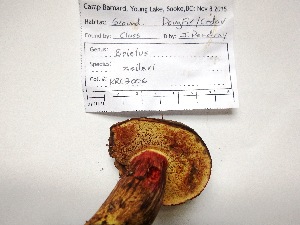 Camp Barnard, Young Lake, Sooke, BC: Nov 3 2015
Habitat: Ground Dougfir/Cedar
Found by: Class ID by: J. Pendray
Genus: Boletus
Species: zelleri
Coll. #: